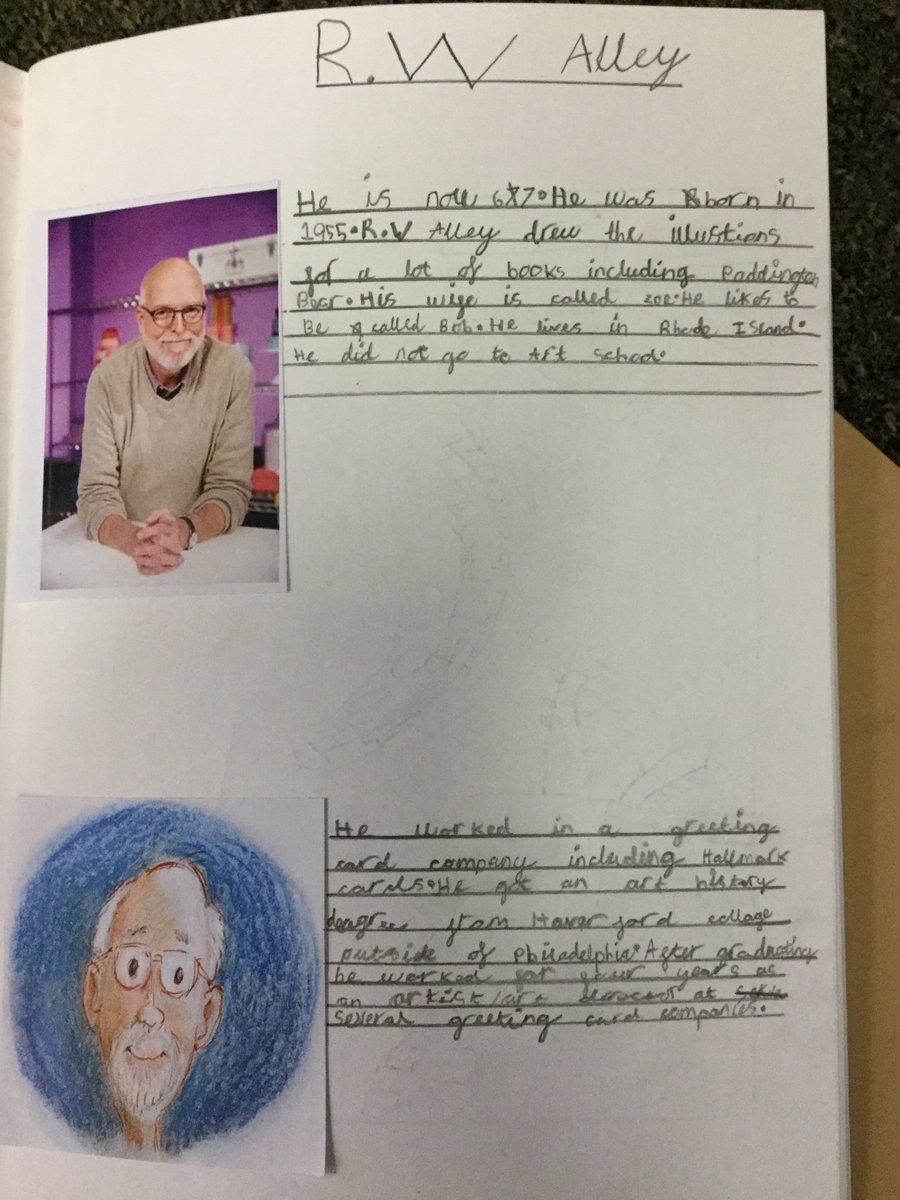 R.W Alley
He is now 67. He was born in
1955. R.W Alley drew the illustions
for a lot of books including Paddington
Bear. His wife is called zoe. He likes to
Be called Bob. He lives in Rhode Island.
He did not go to Art School.
He worked in a greeting
card company including Hallmark
cards. He got an art history
deagree from Haverford collage
outside of Philadelphia. After graduating
he worked for four years as
an artist/art at
several greeting card companies.